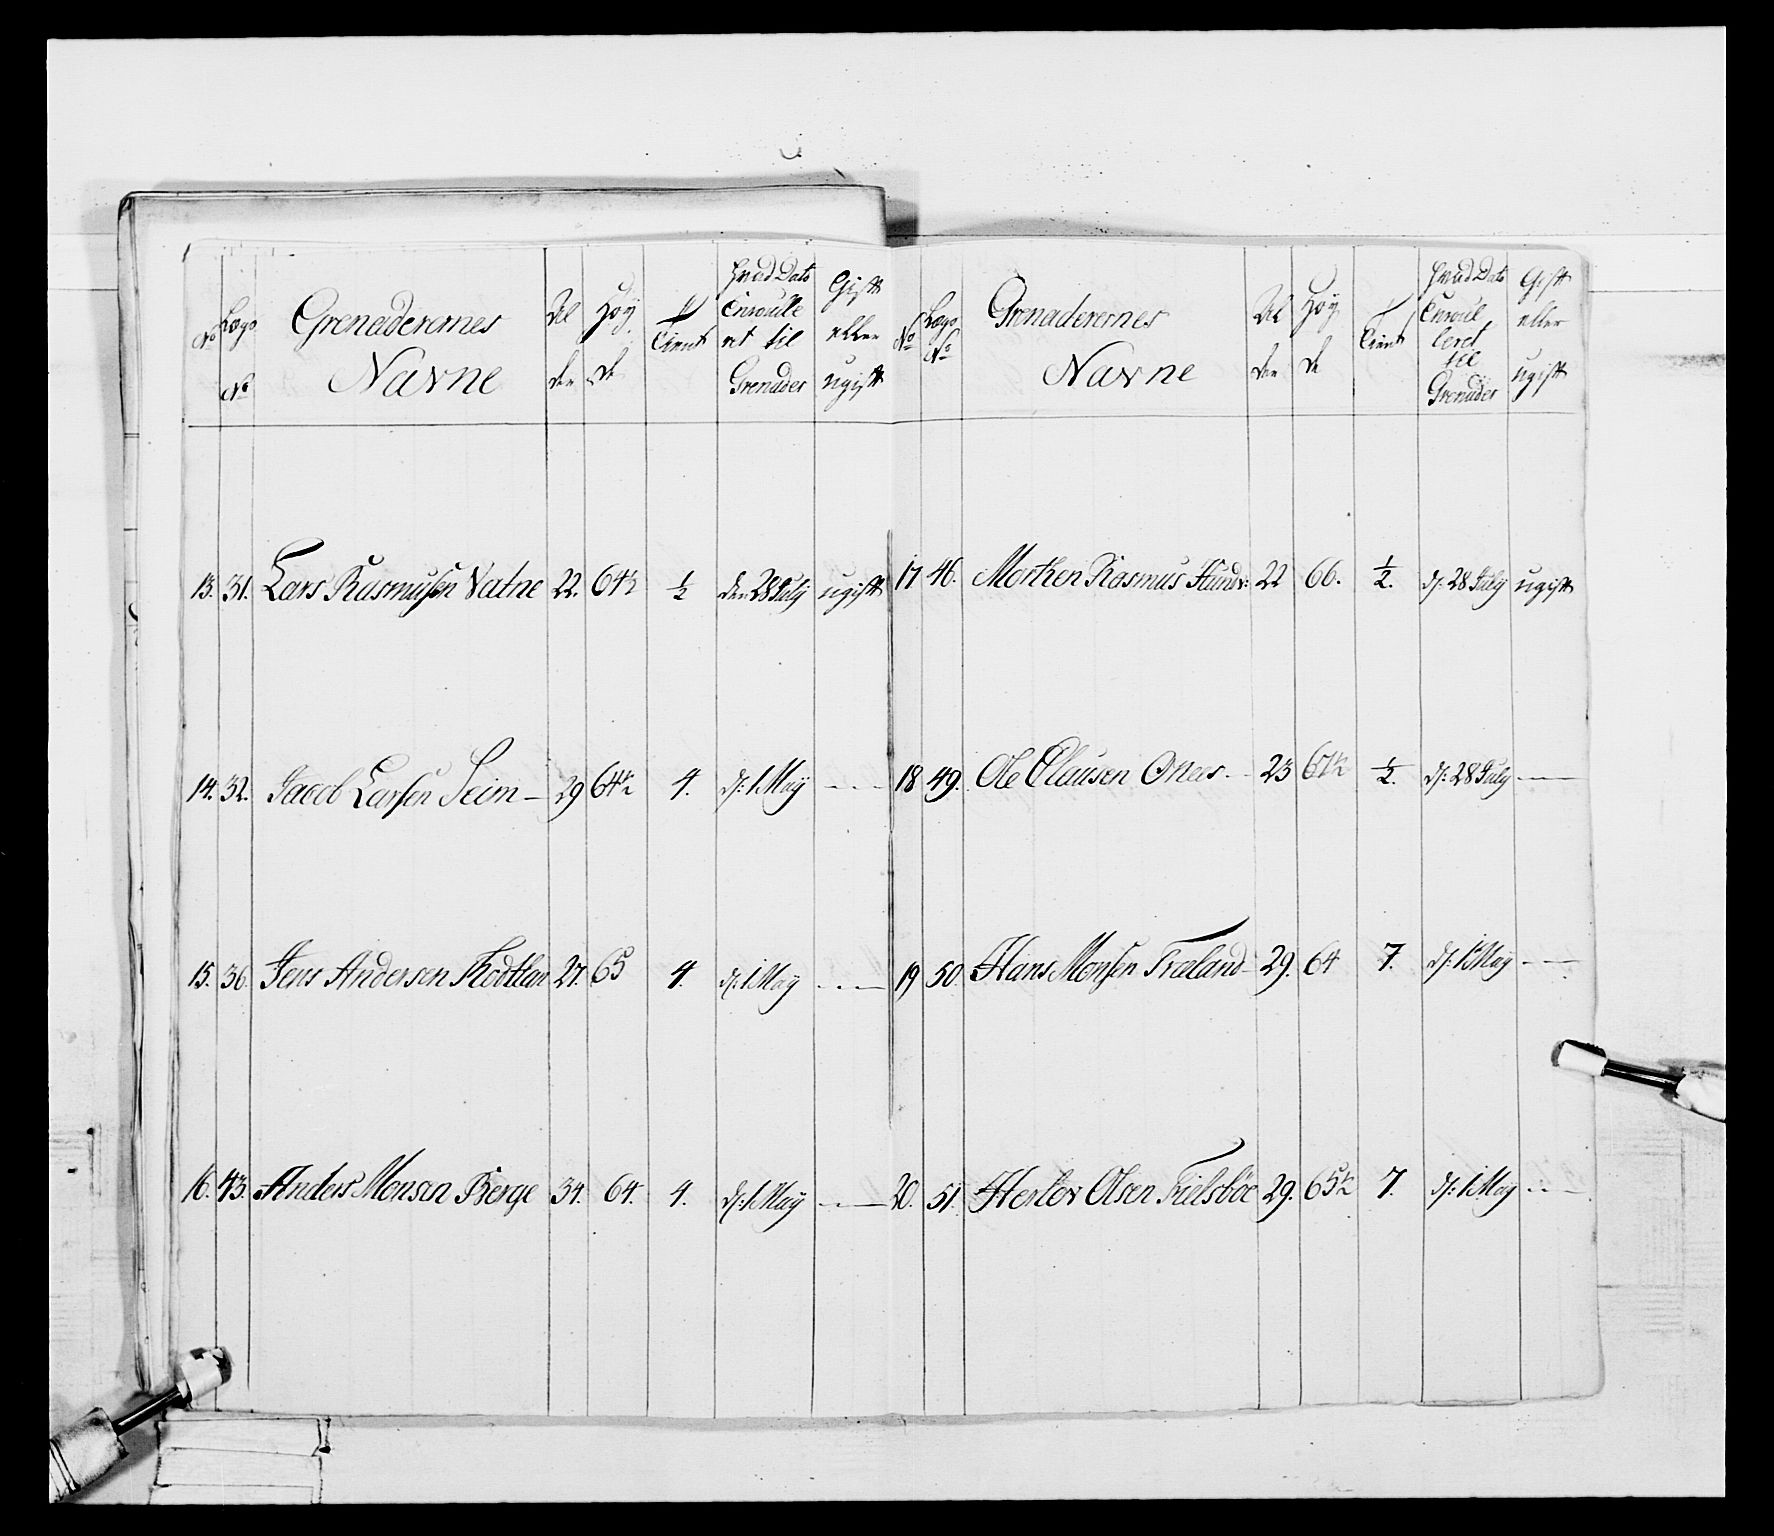 No
Lægs No
Grenaderernes Navne
Al der
Høy de
Tient
Hvad Dato Enroulleret til Grenader
Gift eller ugift
13. 31. Lars Rasmusen Vatne 22. 64½ ½ den 28 July ugift
14. 32. Jacob Larsen Seim — 29 64½ 4. d: 1 May — " —
15. 36. Jens Andersen 27. 65 4. d: 1 May — " —
16. 43. Anders Monsen Berge 34. 64. 4. d: 1 May — " —
No
Lægs No
Grenaderernes Navne
Al der
Høy de
Tient
Hvad Dato Enroulleret til Grenader
Gift eller ugift
17 46. Morthen Rasmus 22 66. ½. d: 28 July ugift
18 49. Ole Clausen 23 ½. d: 28 July — " —
19 50. Hans Monsen Træland 29. 64 7. d: 1 May — " —
20. 51. Herlov Olsen 29. 65½ 7. d: 1 May — " —